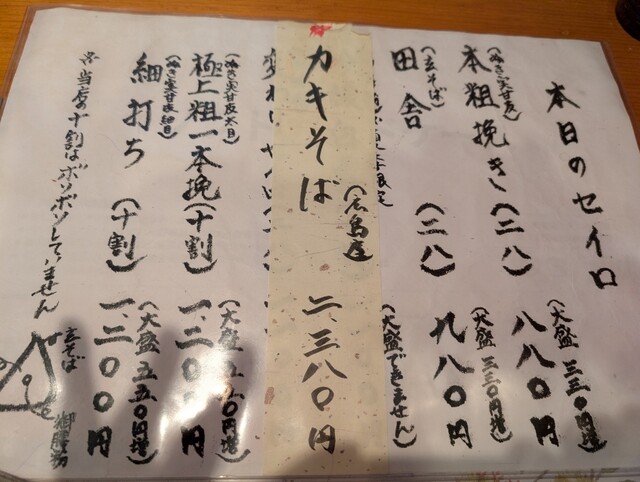 本日のセイロ
(ぬき実甘皮)
本粗挽き(二八) 八八〇円
(大盛三三〇円増)
(玄そば)
田舎(二八) 九八〇円
(大盛三三〇円増)
(大盛できません)
カキそば(広島産) 二、三八〇円
(ぬき実甘皮太目)
極上粗一本挽(十割) 一、二〇〇円
(大盛五五〇円増)
(ぬき実甘皮細目)
細打ち(十割) 一、二〇〇円
(大盛五五〇円増)
※当店の十割はボソボソしていません
玄そば